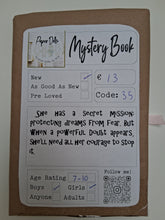 Paper Dots
Mystery Book
New ✓ € 13
As Good As New
Pre Loved Code: 35
She has a secret mission:
protecting dreams from fear. But
when a powerful doubt appears,
she'll need all her courage to stop
it.
Age Rating 7-10
Boys Girls ✓
Anyone Adults
Follow me: